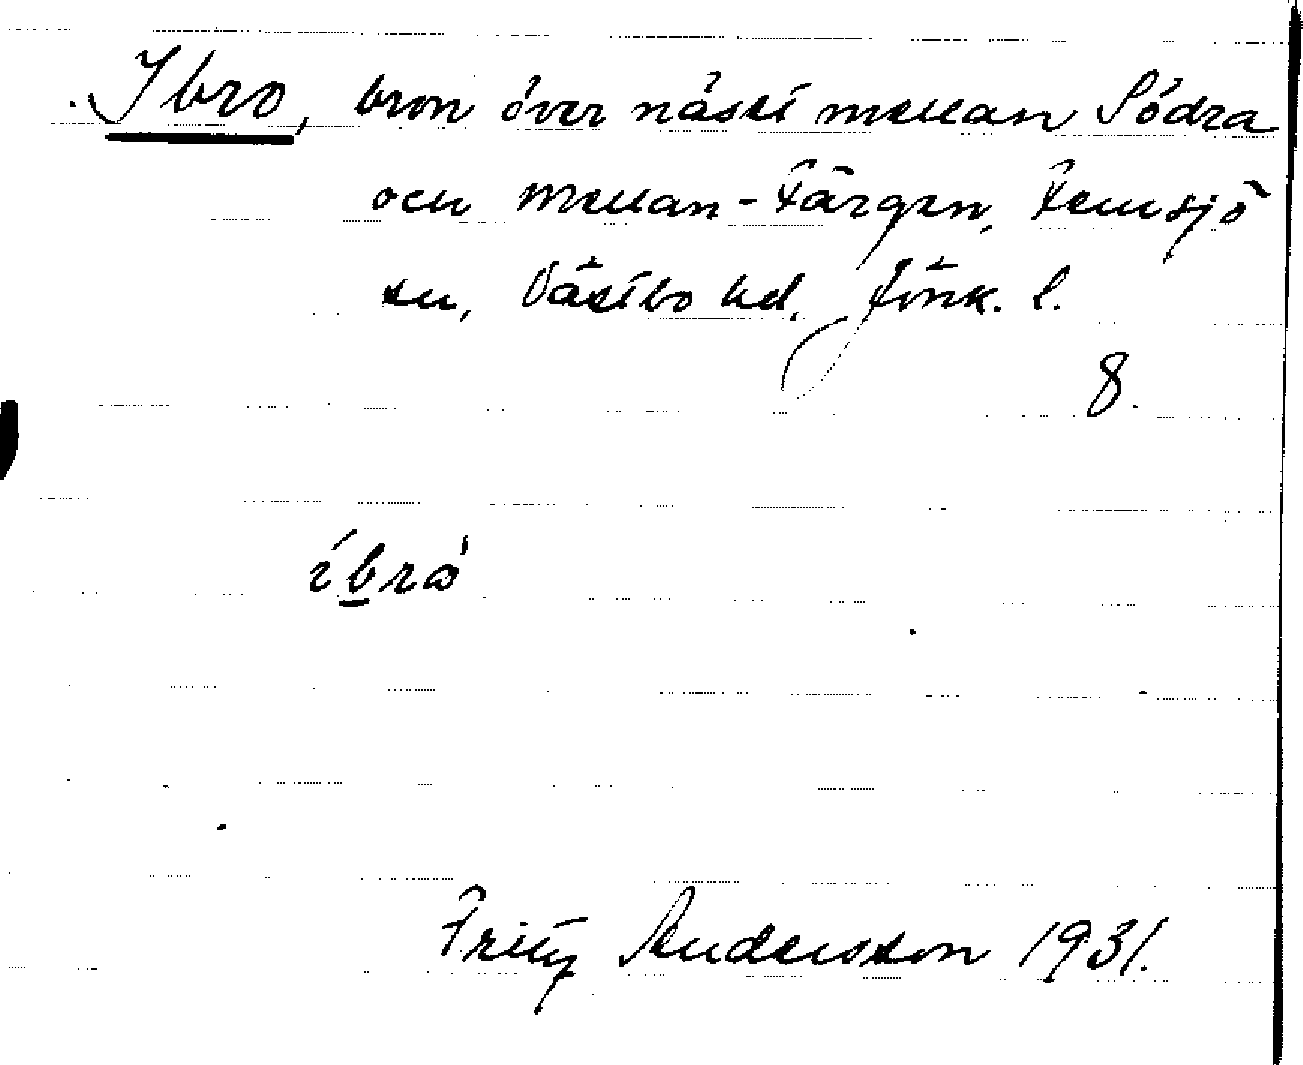 Ibro, bron över näset mellan Södra
och Mellan-Färgen, Femsjö
sn, Västbo hd, Jönk. l.
8.
íbrò
Fritz Andersson 1931.